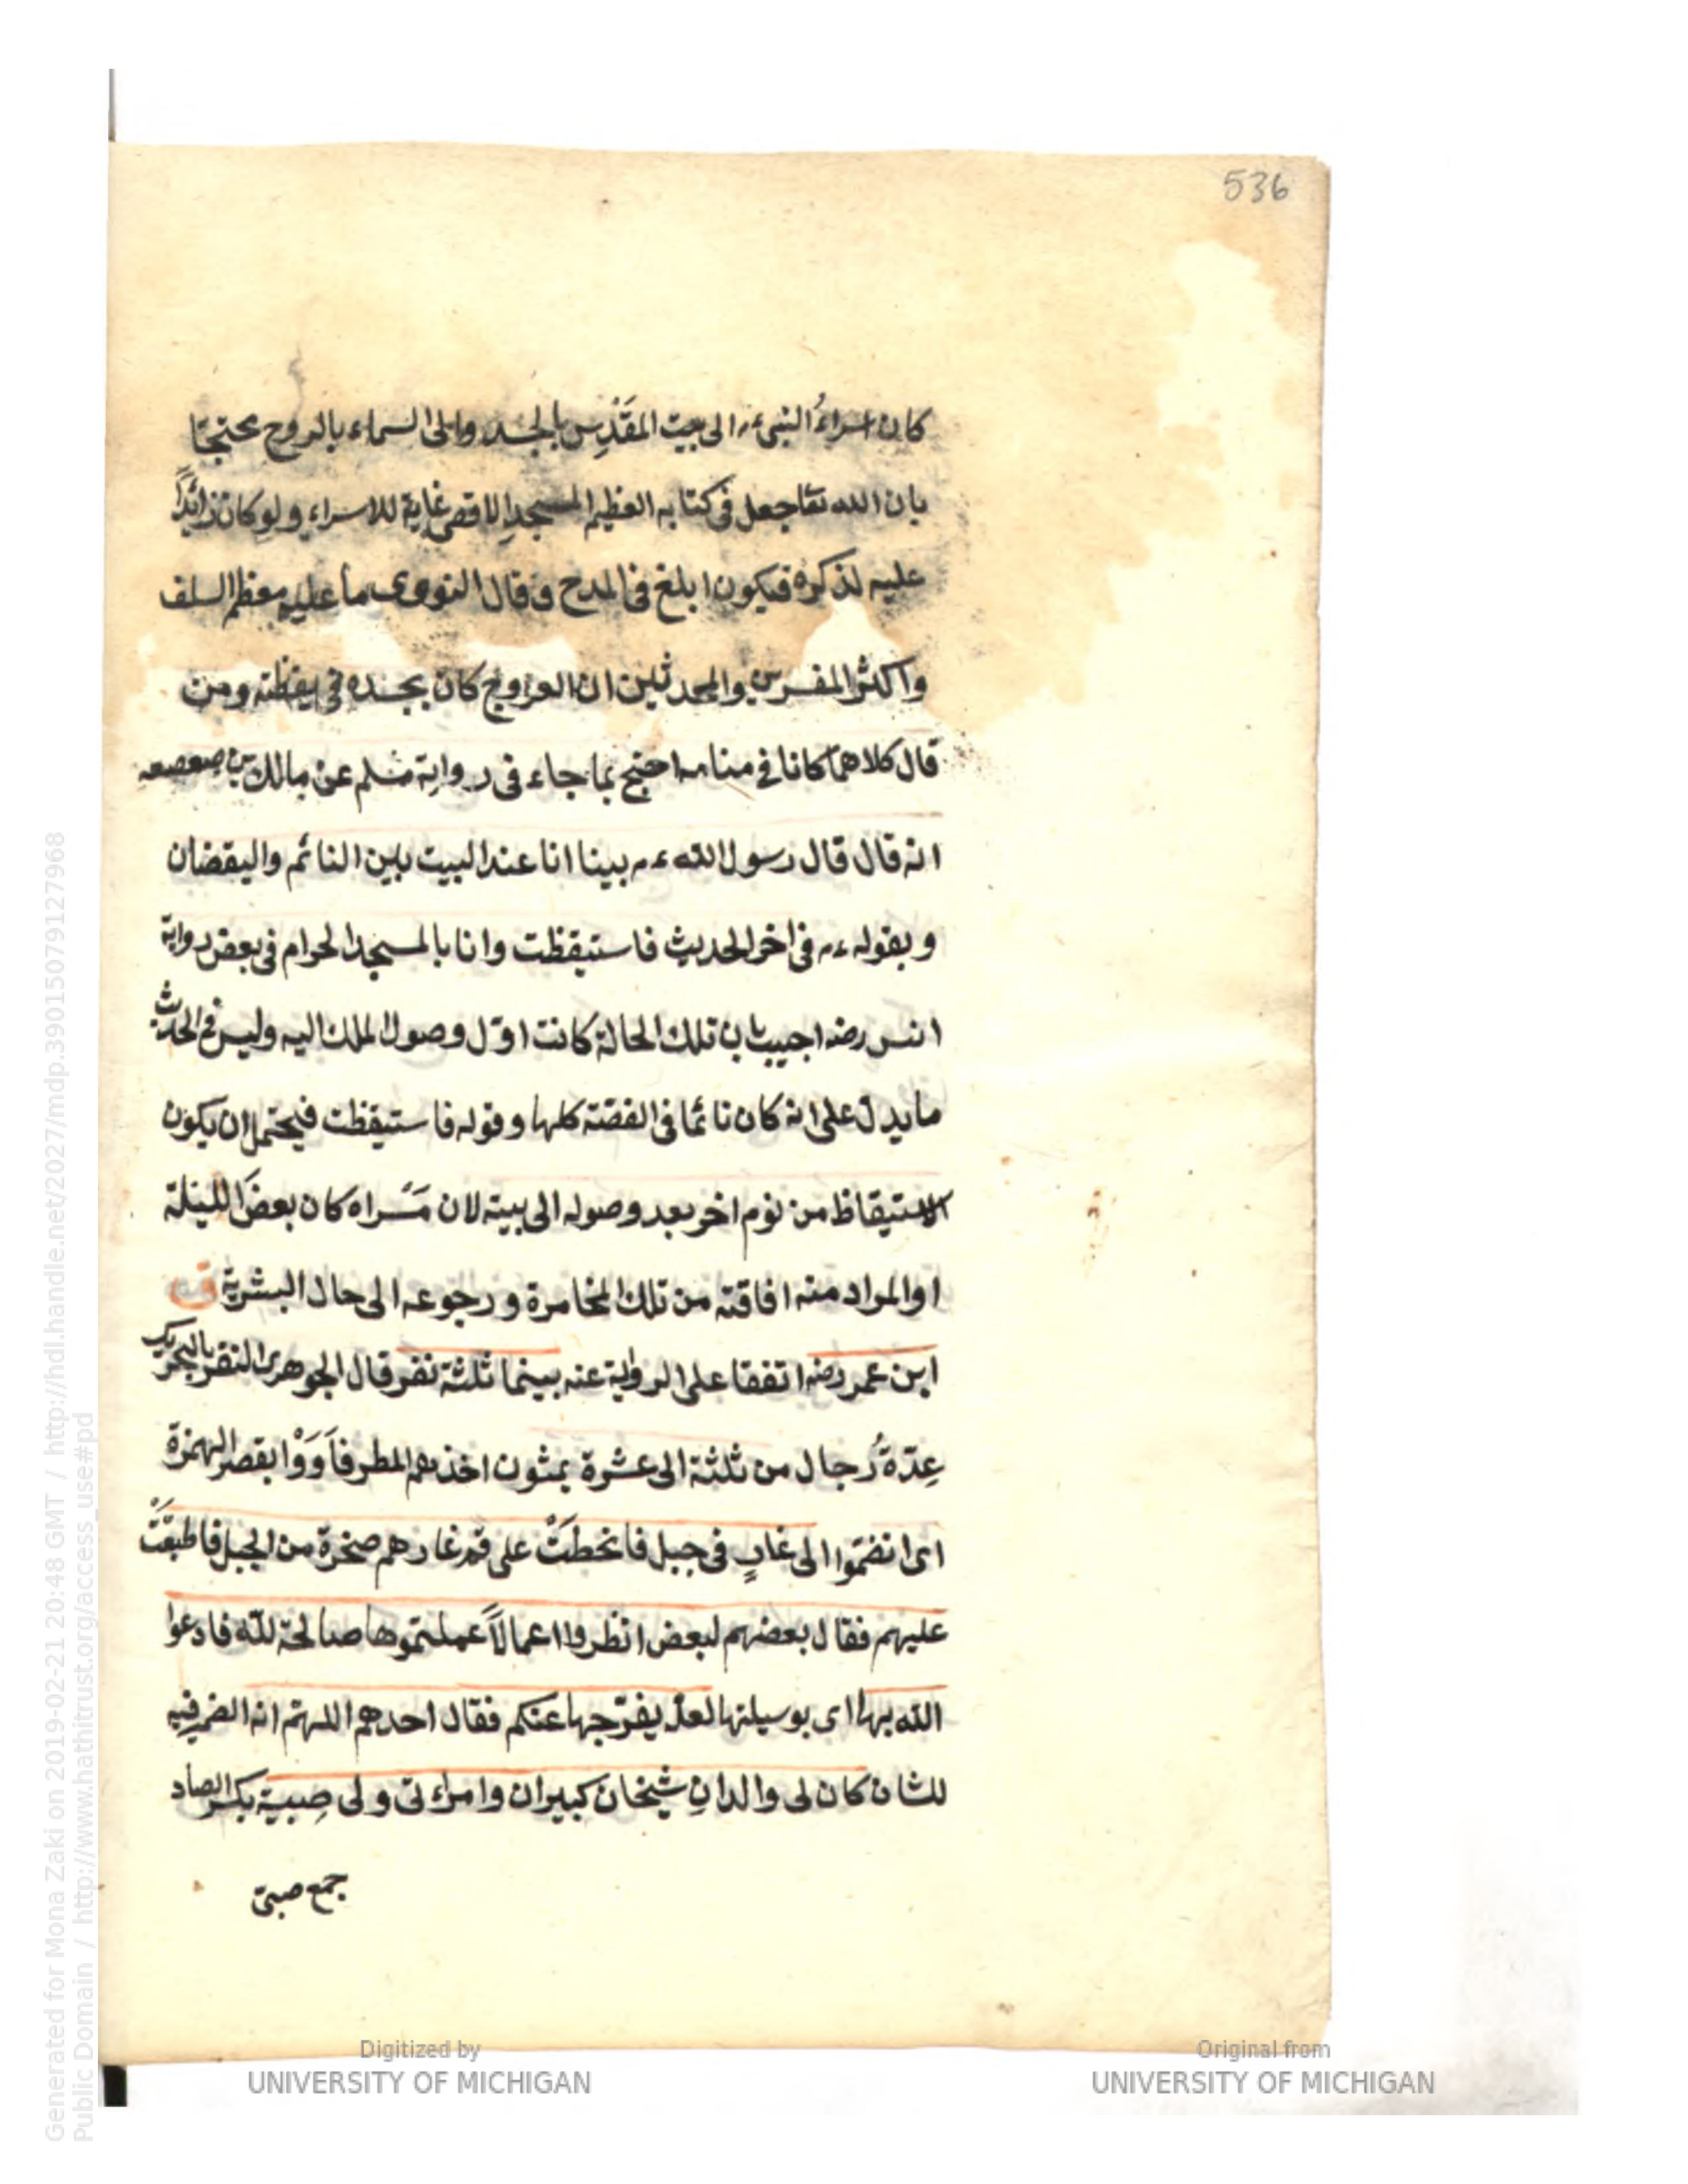 536
كان اسراءُ النبىء م الى بيت المقَدِس بالجسد والى السماء بالروح محتجّا
بان الله تعا جعل فى كتابه العظيم المسجد الاقصى غاية للاسراء ولو كان زائدًا
عليه لذكره فيكون ابلغ فى المدح وقال النووى ما عليه معظم السلف
واكثر المفسرين والمحدثين ان العروج كان بجسده فى يقظته ومن
قال كلاهما كانا فى منامه احتج بما جاء فى رواية مسلم عن مالك بن صعصعه
انه قال قال رسول الله ءم بينا انا عند البيت بين النائم واليقضان
وبقوله ءم فى اخر الحديث فاستيقظت وانا بالمسجد الحرام فى بعض رواية
انس رضه اجيب بان تلك الحالة كانت اوّل وصول الملك اليه وليس فى الحديث
ما يدل على انه كان نائما فى القصّة كلها وقوله فاستيقظت فيحتمل ان يكون
الاستيقاظ من نوم اخر بعد وصوله الى بيته لان مَسْراه كان بعضَ الليلة
او المراد منه افاقته من تلك المخامرة ورجوعه الى حال البشرية ق
ابن عمر رضه اتفقا على الرواية عنه بينما ثلثة نفر قال الجوهرى النفر بالتحريك
عِدّةُ رجال من ثلثة الى عشرة يمشون اخذهم المطر فاَوَوْا بقصر الهمزة
اى انضمّوا الى غارٍ فى جبل فانحطَتْ على فم غارهم صخرة من الجبل فاطبقَتْ
عليهم فقال بعضهم لبعض انظروا اعمالاً عملتموها صالحة لله فادعوا
الله بها اى بوسيلتها لعلّه يفرّجها عنكم فقال احدهم اللهم انه الضمير فيه
للشان كان لى والدانِ شيخان كبيران وامرأتى ولى صِبية بكسر الصاد
جمع صبىّ
Generated for Mona Zaki on 2019-02-21 20:48 GMT / http://hdl.handle.net/2027/mdp.39015079127968
Public Domain / http://www.hathitrust.org/access_use#pd
Digitized by
UNIVERSITY OF MICHIGAN
Original from
UNIVERSITY OF MICHIGAN